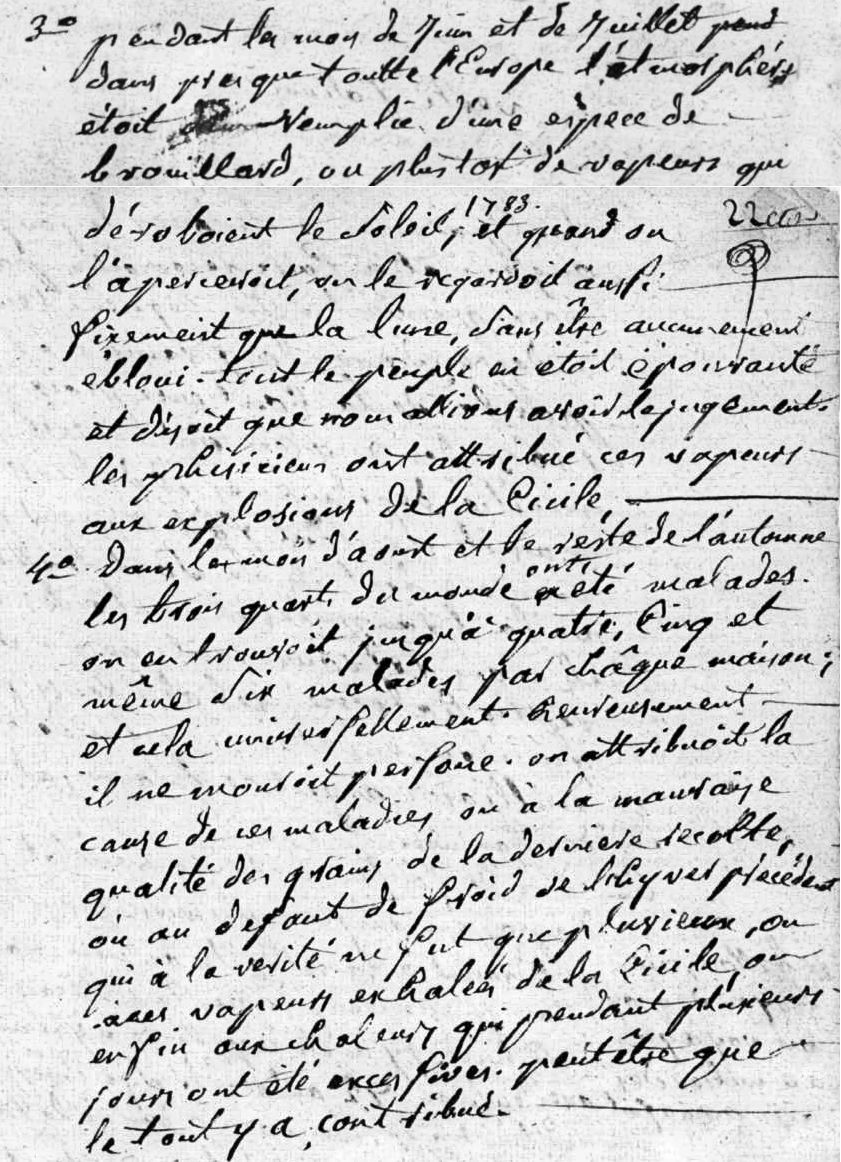 3° pendant les mois de Juin et de Juillet
dans presque toutte l'Europe l'atmosphére
étoit remplie d'une espece de
brouillard, ou plustot de vapeurs qui
1783.
22
déroboient le Soleil, et quand on
l'apercevoit, on le regardoit aussi
fixement que la lune, sans être aucunement
ébloui. tout le peuple en étoit épouvanté
et disoit que nous allions avoir le jugement.
les phisiciens ont attribué ces vapeurs
aux explosions de la Cicile,
4° Dans les mois d'aoust et le reste de l'automne
les trois quarts du monde ont été malades.
on en trouvoit jusqu'à quatre, Cinq et
même Six malades par châque maison;
et cela universellement. heureusement
il ne mouroit persone. on attribuoit la
cause de ces maladies, ou à la mauvaise
qualité des grains de la derniere recolte,
ou au defaut de froid de l'hyver précédent
qui à la verité ne fut que pluvieux, ou
à ces vapeurs exhalées de la Cicile, ou
enfin aux chaleurs qui pendant plusieurs
jours ont été excessives. peutêtre que
le tout y a contribué.